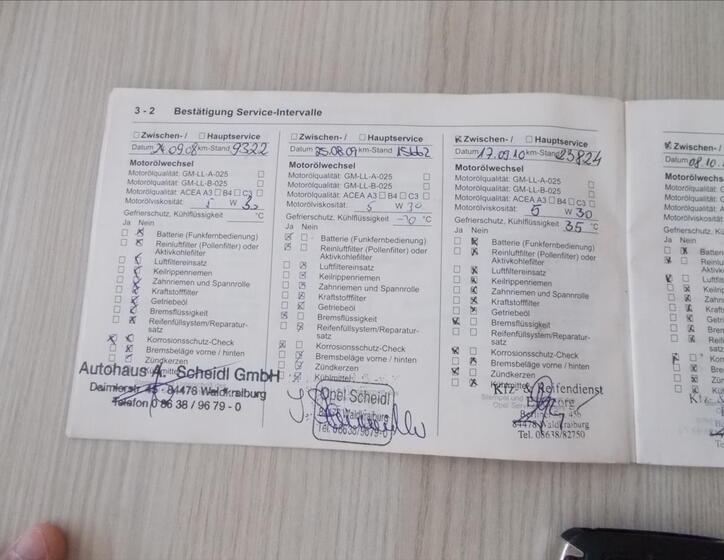 3 - 2 Bestätigung Service-Intervalle
Zwischen- / Hauptservice
Datum 24.09.08 km-Stand 9322
Motorölwechsel
Motorölqualität: GM-LL-A-025
Motorölqualität: GM-LL-B-025
Motorölqualität: ACEA A3 B4 C3
Motorölviskosität: 5 W 30
Gefrierschutz, Kühlflüssigkeit °C
Ja Nein
Batterie (Funkfernbedienung)
Reinluftfilter (Pollenfilter) oder
Aktivkohlefilter
Luftfiltereinsatz
Keilrippenriemen
Zahnriemen und Spannrolle
Kraftstofffilter
Getriebeöl
Bremsflüssigkeit
Reifenfüllsystem/Reparatur-
satz
Korrosionsschutz-Check
Bremsbeläge vorne / hinten
Zündkerzen
Autohaus A. Scheidl GmbH
Daimlerstr. 45 · 84478 Waldkraiburg
Telefon 0 86 38 / 96 79 - 0
Zwischen- / Hauptservice
Datum 25.08.09 km-Stand 15662
Motorölwechsel
Motorölqualität: GM-LL-A-025
Motorölqualität: GM-LL-B-025
Motorölqualität: ACEA A3 B4 C3
Motorölviskosität: 5 W 30
Gefrierschutz, Kühlflüssigkeit °C
Ja Nein
Batterie (Funkfernbedienung)
Reinluftfilter (Pollenfilter) oder
Aktivkohlefilter
Luftfiltereinsatz
Keilrippenriemen
Zahnriemen und Spannrolle
Kraftstofffilter
Getriebeöl
Bremsflüssigkeit
Reifenfüllsystem/Reparatur-
satz
Korrosionsschutz-Check
Bremsbeläge vorne / hinten
Zündkerzen
Kühlmittel
Opel Scheidl
Waldkraiburg
Tel. 08638/9679-0
Zwischen- / Hauptservice
Datum 17.09.10 km-Stand 23824
Motorölwechsel
Motorölqualität: GM-LL-A-025
Motorölqualität: GM-LL-B-025
Motorölqualität: ACEA A3 B4 C3
Motorölviskosität: 5 W 30
Gefrierschutz, Kühlflüssigkeit 35 °C
Ja Nein
Batterie (Funkfernbedienung)
Reinluftfilter (Pollenfilter) oder
Aktivkohlefilter
Luftfiltereinsatz
Keilrippenriemen
Zahnriemen und Spannrolle
Kraftstofffilter
Getriebeöl
Bremsflüssigkeit
Reifenfüllsystem/Reparatur-
satz
Korrosionsschutz-Check
Bremsbeläge vorne / hinten
Zündkerzen
Kühlmittel
Kfz- & Reifendienst
84478 Waldkraiburg
Tel. 08638/82750
Zwischen- /
Datum 08.10.
Motorölwechs
Motorölqualität:
Motorölqualität:
Motorölqualität:
Motorölviskosität:
Gefrierschutz, Kü
Ja Nein
Batterie
Reinlu
Aktivk
Luftfil
Keilrip
Zahn
Kraft
Getri
Brem
Reife
satz
Korr
Bre
Zün